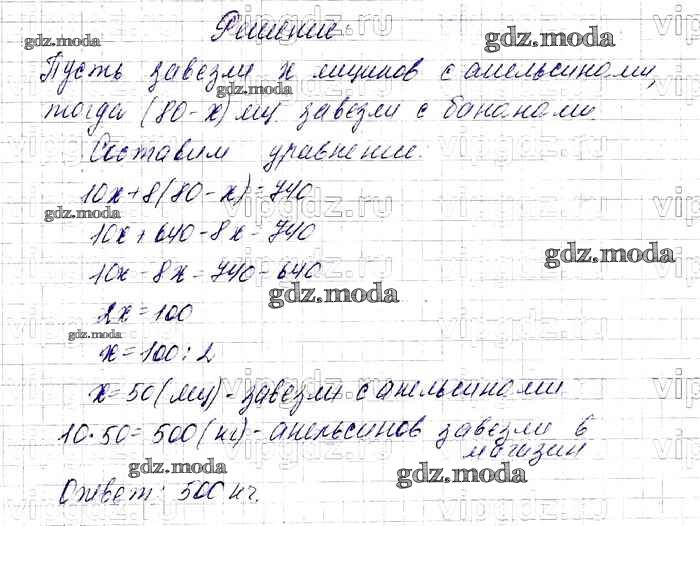 Решение
Пусть завезли x ящиков с апельсинами,
тогда (80-x) ящ завезли с бананами.
Составим уравнение:
10x+8(80-x)=740
10x+640-8x=740
10x-8x=740-640
2x=100
x=100:2
x=50(ящ)-завезли с апельсинами.
10·50=500(кг)-апельсинов завезли в
магазин
Ответ: 500кг.
gdz.moda
gdz.moda
gdz.moda
gdz.moda
gdz.moda
gdz.moda
gdz.moda
gdz.moda
gdz.moda
vipgdz.ru
vipgdz.ru
vipgdz.ru
vipgdz.ru
vipgdz.ru
vipgdz.ru